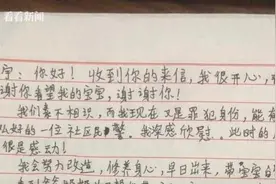 看看新闻
：你好！收到你的来信，我很开心，
谢你看望我的宝宝，谢谢你！
我们素不相识，而我现在又是罪犯身份，能有
么好的一位社区民警。我深感欣慰。此时的
很是感动！
我会努力改造，修养身心，早日出来，带宝宝